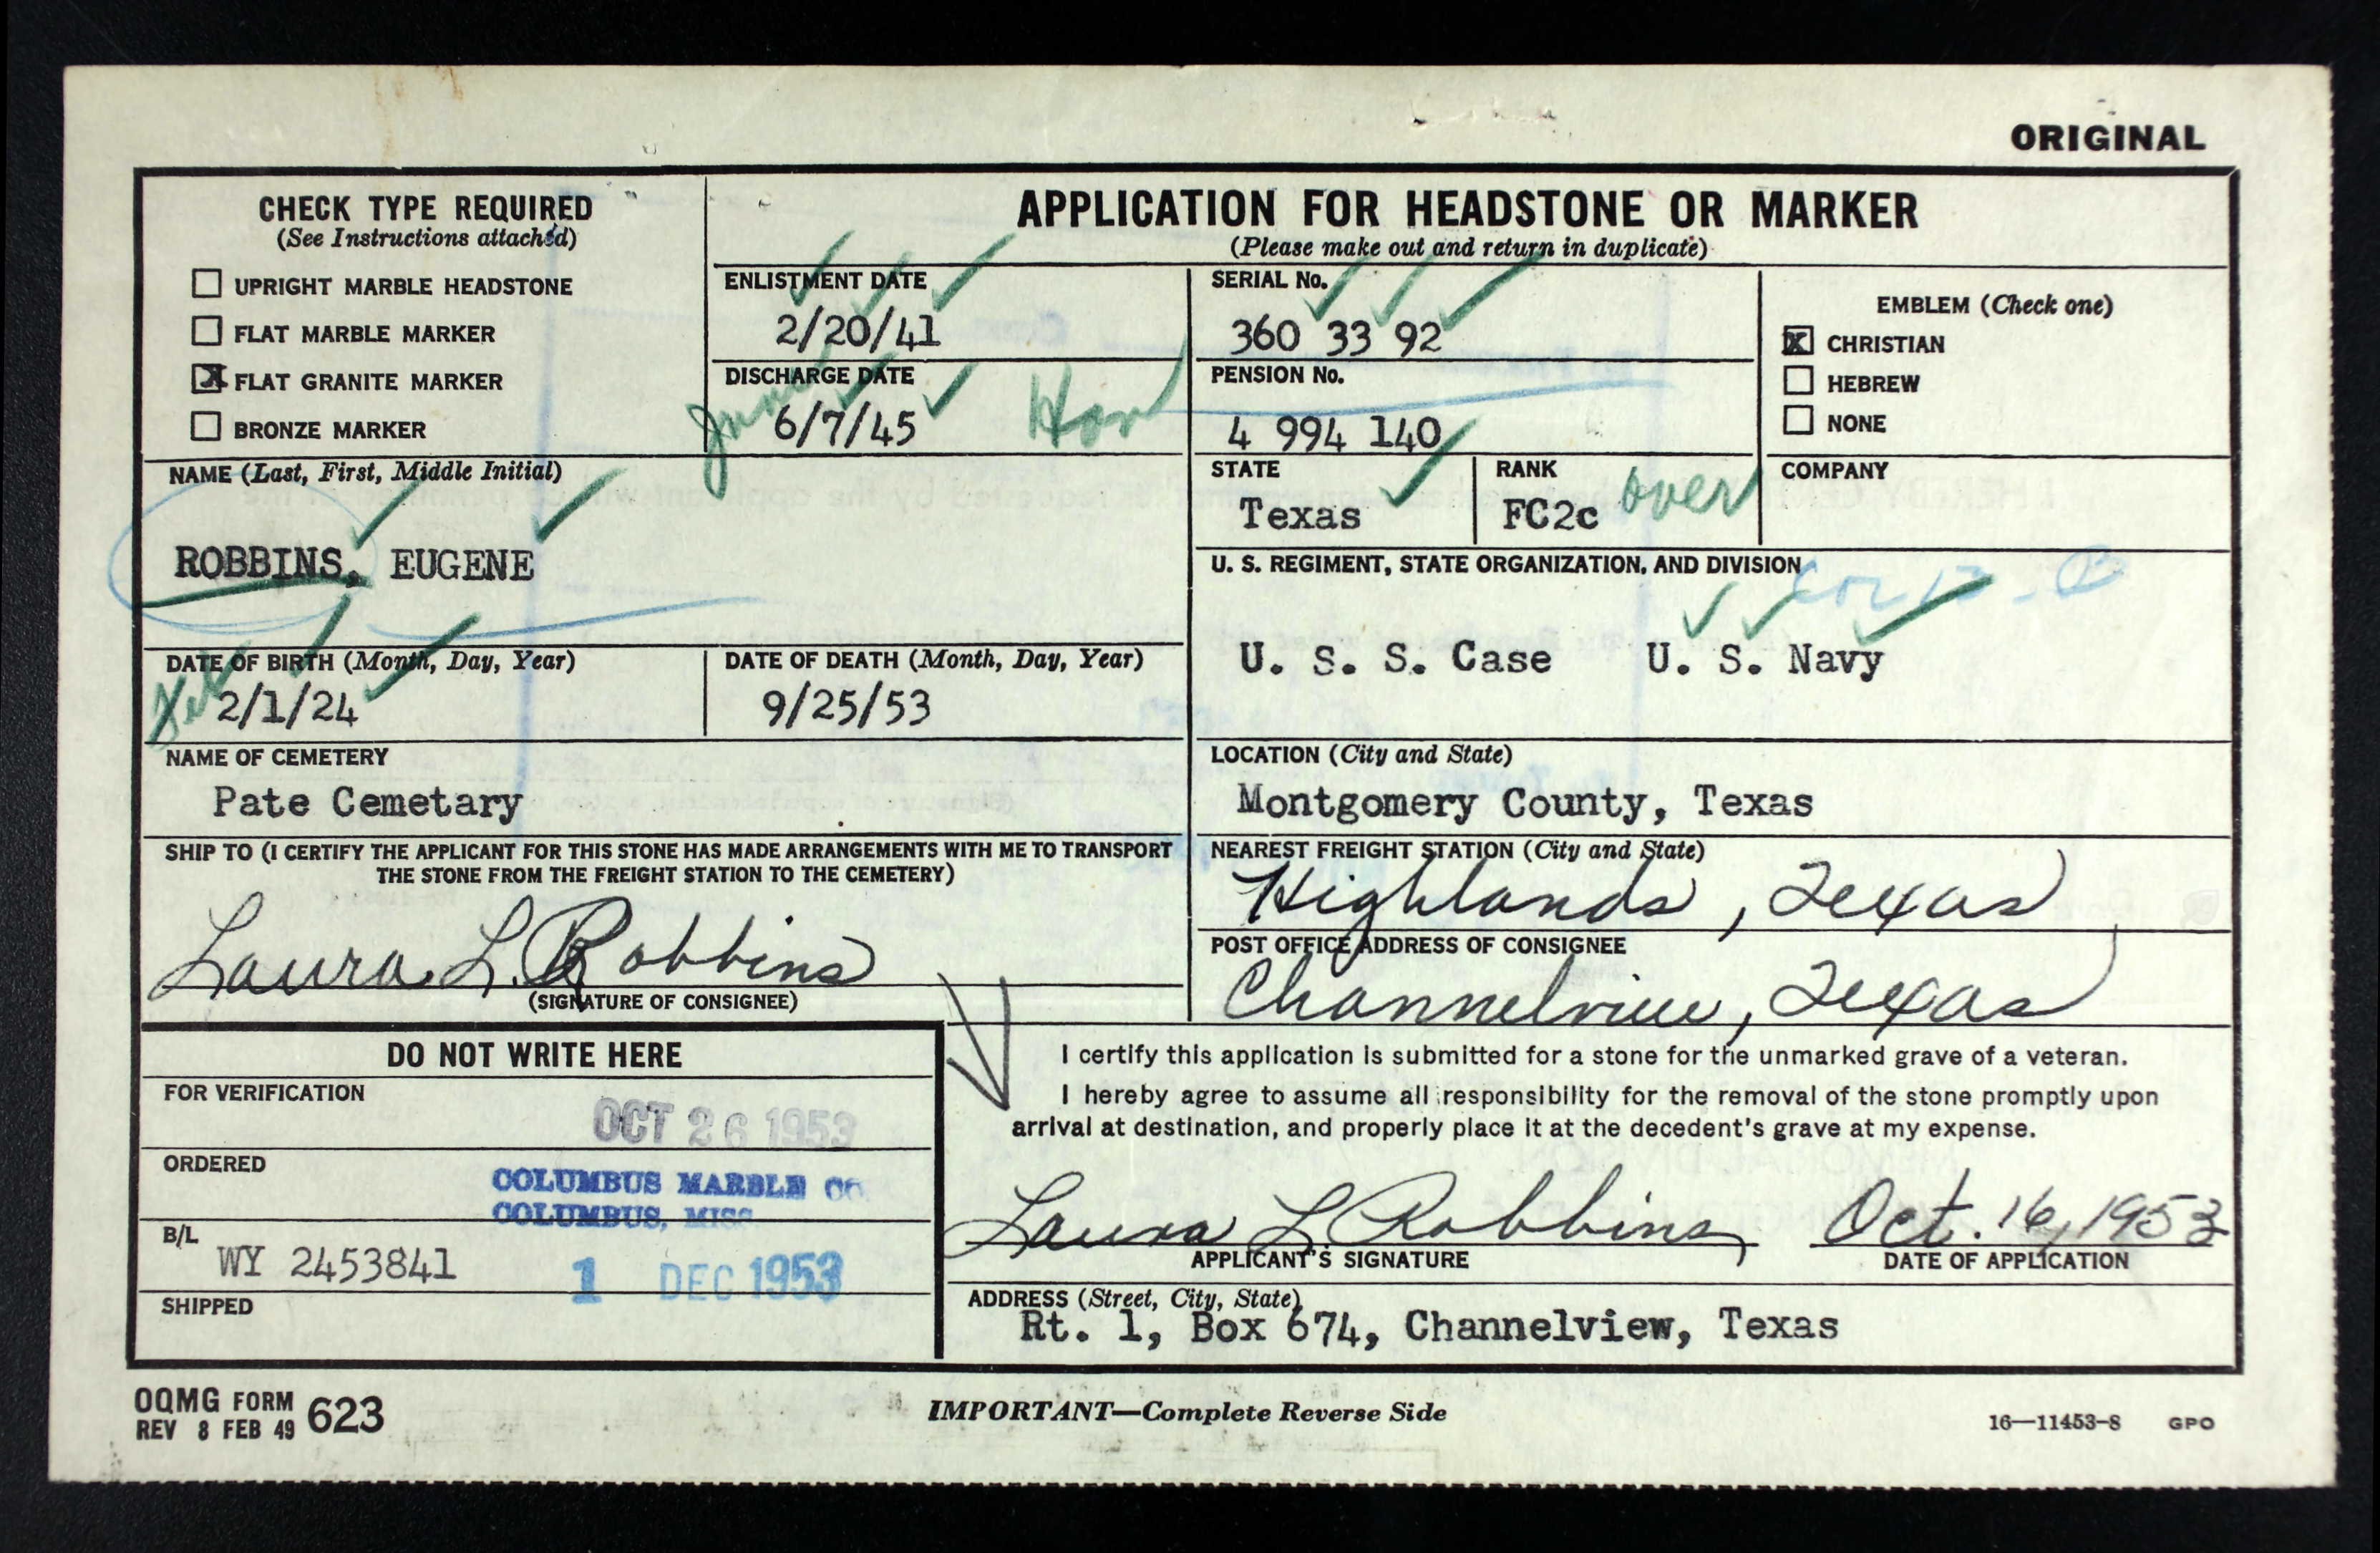 ORIGINAL
CHECK TYPE REQUIRED
(See Instructions attached)
UPRIGHT MARBLE HEADSTONE
FLAT MARBLE MARKER
X FLAT GRANITE MARKER
BRONZE MARKER
APPLICATION FOR HEADSTONE OR MARKER
(Please make out and return in duplicate)
ENLISTMENT DATE
2/20/41
DISCHARGE DATE
June 6/7/45 Hon
SERIAL No.
360 33 92
PENSION No.
4 994 140
EMBLEM (Check one)
X CHRISTIAN
HEBREW
NONE
NAME (Last, First, Middle Initial)
ROBBINS, EUGENE
STATE
Texas
RANK
FC2c over
COMPANY
U. S. REGIMENT, STATE ORGANIZATION, AND DIVISION
U. S. S. Case U. S. Navy
DATE OF BIRTH (Month, Day, Year)
Feb 2/1/24
DATE OF DEATH (Month, Day, Year)
9/25/53
NAME OF CEMETERY
Pate Cemetary
LOCATION (City and State)
Montgomery County, Texas
SHIP TO (I CERTIFY THE APPLICANT FOR THIS STONE HAS MADE ARRANGEMENTS WITH ME TO TRANSPORT
THE STONE FROM THE FREIGHT STATION TO THE CEMETERY)
Laura L. Robbins
(SIGNATURE OF CONSIGNEE)
NEAREST FREIGHT STATION (City and State)
Highlands, Texas
POST OFFICE ADDRESS OF CONSIGNEE
Channelview, Texas
DO NOT WRITE HERE
FOR VERIFICATION
OCT 26 1953
ORDERED
COLUMBUS MARBLE CO.
COLUMBUS, MISS.
B/L
WY 2453841
1 DEC 1953
SHIPPED
I certify this application is submitted for a stone for the unmarked grave of a veteran.
I hereby agree to assume all responsibility for the removal of the stone promptly upon
arrival at destination, and properly place it at the decedent's grave at my expense.
Laura L Robbins Oct. 16, 1953
APPLICANT'S SIGNATURE DATE OF APPLICATION
ADDRESS (Street, City, State)
Rt. 1, Box 674, Channelview, Texas
OQMG FORM 623
REV 8 FEB 49
IMPORTANT—Complete Reverse Side
16—11453-8 GPO